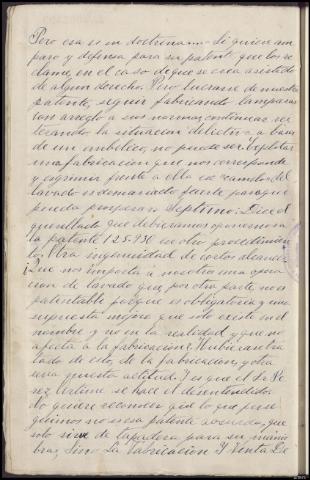 Pero esa es su doctrina... Si quiere am
paro y defensa para su patente que los re
clame, en el caso de que se crea asistido
de algun derecho. Pero lucrarse de nuestra
patente, seguir fabricando lamparas
con arreglo a sus normas, continuar de
tentando la situacion delictiva a base
de un embeleco, no puede ser. Explotar
una fabricacion que nos corresponde
y esgrimir frente a ella el camelo del
lavado es demasiado fuerte para que
pueda prosperar. Septimo: Dice el
querellado que debieramos oponernos a
la patente 125.936 en otro procedimien
to. Otra ingenuidad de cortos alcances
¡Que nos importa a nosotros una opera
cion de lavado que por otra parte no es
patentable porque es obligatoria y una
supuesta mejora que solo existe en el
nombre y no en la realidad y que no
afecta a la fabricacion? Hubierantra
tado de ello, de la fabricacion, y otra
sera nuestra actitud. Y es que el Sr Pe
rez se hace el desentendido.
No quiere reconocer que lo que perse
guimos no es esa patente que
solo sirve de tapadera para sus manio
bras, Sino La Fabricacion Y Venta De